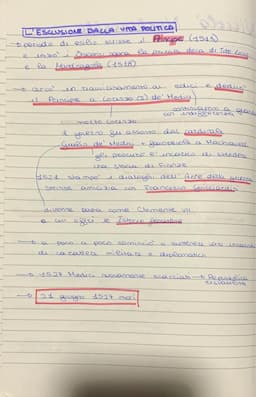 L'ESCLUSIONE DALLA VITA POLITICA
→ periodo di esilio scrisse il Principe (1513)
e iniziò i Discorsi sopra la prima deca di Tito Livio
e la Mandragola (1518)
→ cercò un riavvicinamento ai Medici e dedicò
il Principe a Lorenzo (2) de' Medici
con indifferenza
morto Lorenzo
il governo fu assunto dal cardinale
Giulio de' Medici → favorevole a Machiavelli
gli procurò l'incarico di scrivere
una storia di Firenze
1521 stampò i dialoghi dell'Arte della guerra
strinse amicizia con Francesco Guicciardini
divenne papa come Clemente VII
e con offrì le Istorie fiorentine
→ a poco a poco cominciò a
di carattere militare e diplomatico
→ 1527 Medici nuovamente scacciati → Repubblica
→ 21 giugno 1527 morì